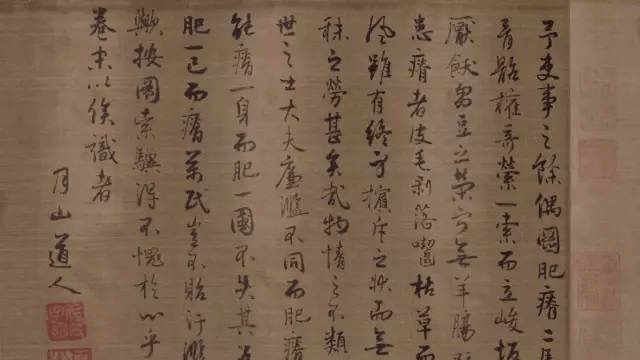 予吏事之餘偶圖肥瘠二馬
骨骼權奇縈一索而立峻坂
厭飫芻豆之榮寧無羊腸
患瘠者皮毛剥落嚙枯草而
風雖有終身擯斥之狀而無
秣之勞甚矣哉物情之不類
世之士大夫廉濫不同而肥瘠
能瘠一身而肥一國不失其為
肥一己而瘠萬民豈不貽汙濫
歟按圖索驥得不愧於心乎
卷末以俟識者
月山道人